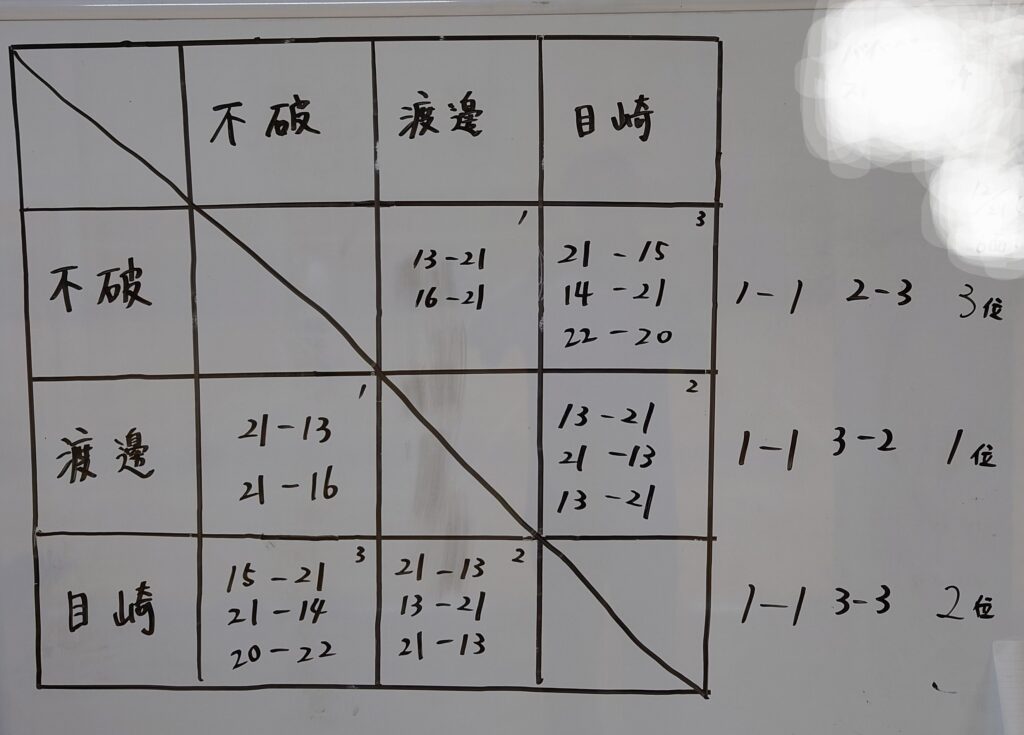 不破 渡邊 目崎
不破
1
13-21
16-21
3
21-15
14-21
22-20
1-1 2-3 3位
渡邊
1
21-13
21-16
2
13-21
21-13
13-21
1-1 3-2 1位
目崎
3
15-21
21-14
20-22
2
21-13
13-21
21-13
1-1 3-3 2位